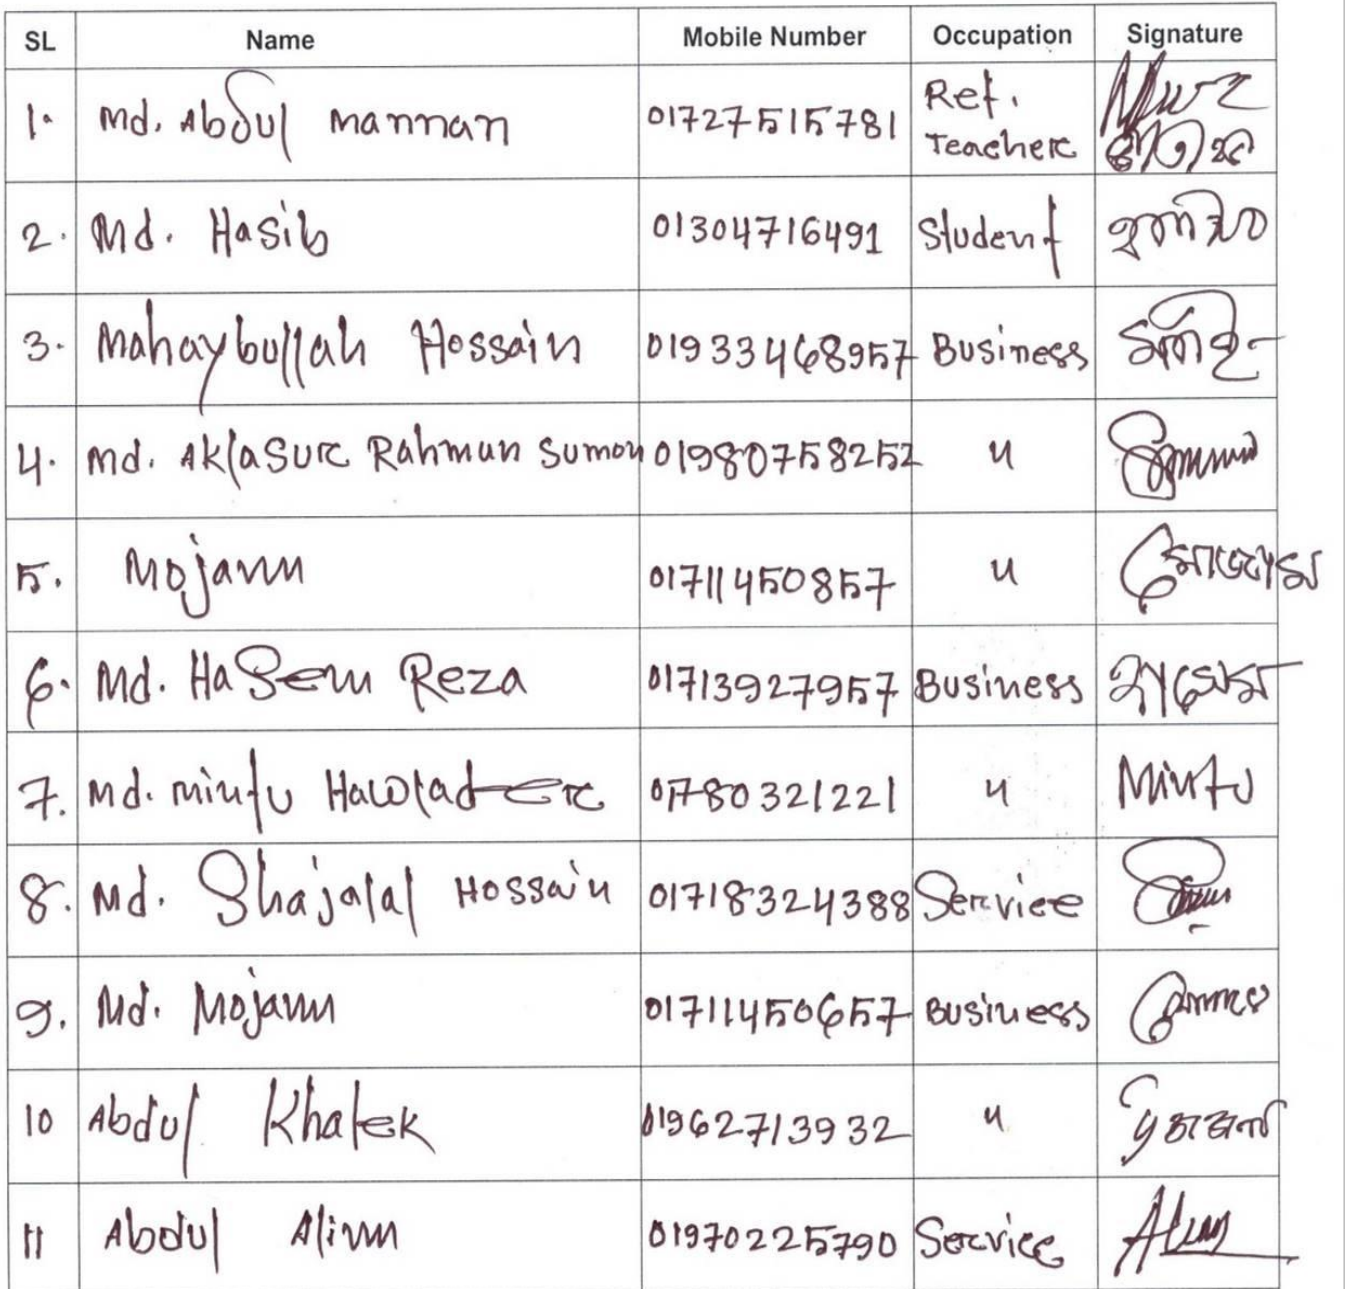 SL Name Mobile Number Occupation Signature
1. Md. Abdul Mannan 01727515781 Ret. Teacher
2. Md. Hasib 01304716491 Student
3. Mahaybullah Hossain 01933468957 Business
4. Md. Aklasur Rahman Sumon 01980758252 "
5. Mojamm 01711450857 "
6. Md. Hasem Reza 01713927957 Business
7. Md. Mintu Hawlader 01780321221 " Mintu
8. Md. Shajalal Hossain 01718324388 Service
9. Md. Mojamm 01711450657 Business
10 Abdul Khalek 01962713932 "
11 Abdul Alim 01970225790 Service